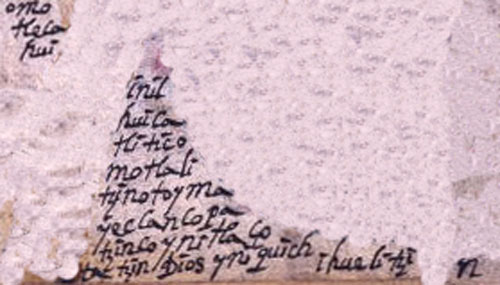 omo
tleca
hui
inil
huica
tlitico
motlali
tzinotoyma
yeccancopa
tzinco ynitlaço
tatzin Dios yniquich ihuelitzi n